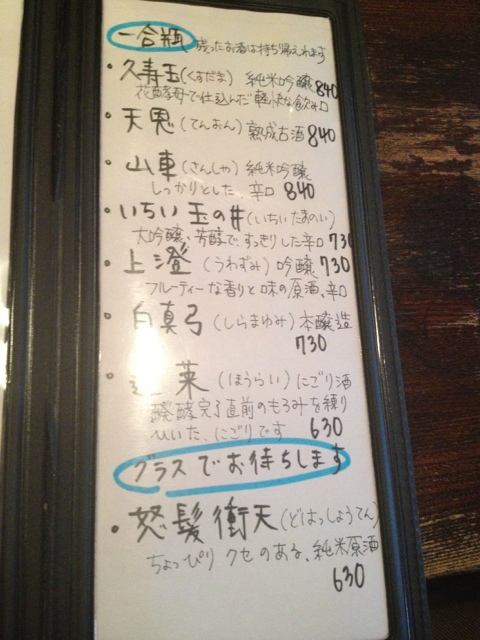 一合瓶 残ったお酒は持ち帰えれます
・久寿玉(くすだま) 純米吟醸 840
花酵母で仕込んだ軽快な飲み口
・天恩(てんおん) 熟成古酒 840
・山車(さんしゃ) 純米吟醸
しっかりとした、辛口 840
・いちい 玉の井(いちい たまのい)
大吟醸、芳醇で、すっきりした辛口 730
・上澄 (うわずみ) 吟醸 730
フルーティーな香りと味の原酒、辛口
・白真弓(しらまゆみ)本醸造
730
・蓬莱(ほうらい)にごり酒
醗酵完了直前のもろみを練り
ひいた、にごりです 630
グラスでお待ちします
・怒髪衝天(どはっしょうてん)
ちょっぴり クセのある、純米原酒
630